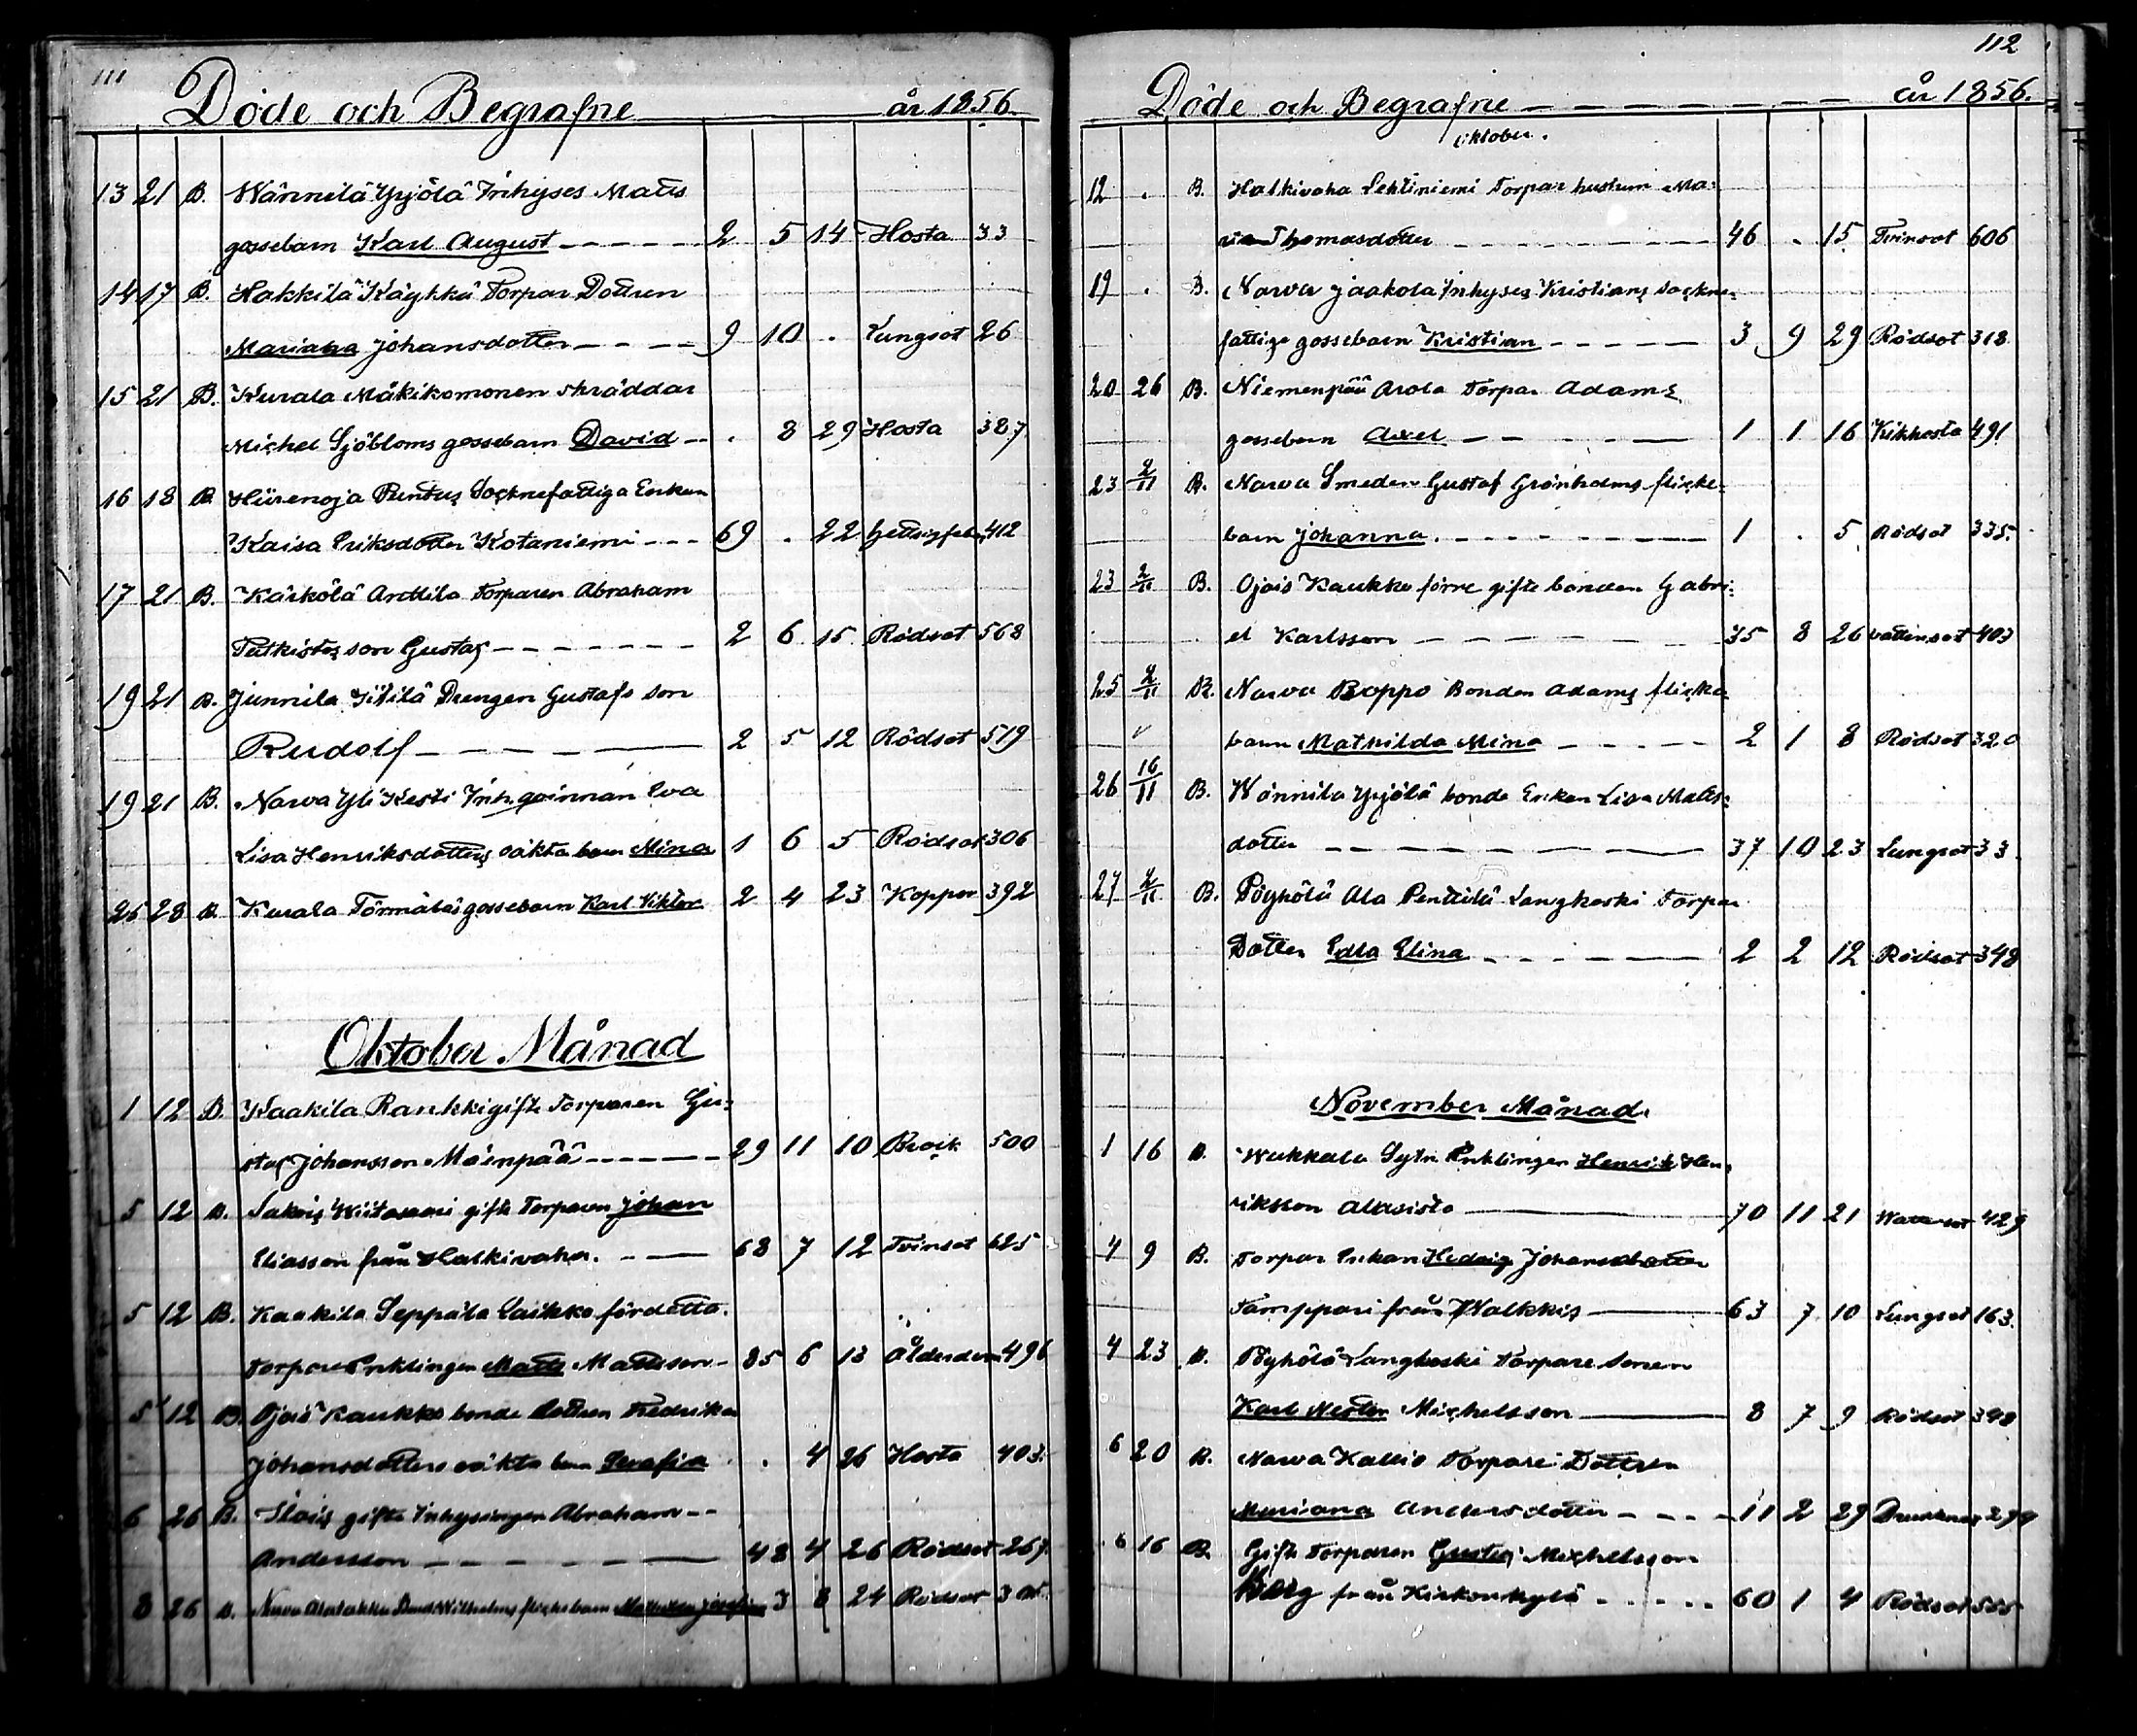 111
Döde och Begrafne år 1856.
13 21 B. Wännilä Yrjölä Inhyses Matts
gossebarn Karl August 2 5 14 Hosta 33
14 17 B. Hakkilä Käyhkä Torpar Dottren
Mariana Johansdotter 9 10 . Lungsot 26
15 21 B. Kurala Mäkikomonen skräddar
Michel Sjöbloms gossebarn David . 8 29 Hosta 387
16 18 B. Hiirenoja Puntus Socknefattiga Enkan
Kaisa Eriksdotter Kotaniemi 69 . 22 412
17 21 B. Kärkölä Anttila Torparen Abraham
son Gustaf 2 6 15 Rödsot 568
19 21 B. Junnila Drengen Gustafs son
Rudolf 2 5 12 Rödsot 519
19 21 B. Narva Yli Kesti Inh. qvinnan Eva
Lisa Henriksdotters oäkta barn Mina 1 6 5 Rödsot 306
25 28 B. Kurala Törmälä gossebarn Karl Viktor 2 4 23 Koppor 392
Oktober Månad
1 12 B. Kaakila Raukki gifte Torparen Gu-
staf Johansson Mäenpää 29 11 10 Brock 500
5 12 B. Sakois Wiitasaari gifte Torparen Johan
Eliasson från Halkivaha. 68 7 12 Tvinsot 625
5 12 B. Kaakila Seppälä Laikko fördetta
Torpare Enklingen Matts Mattsson 85 6 13 Ålderdom 496
5 12 B. Ojois Kaukko bonde Dottren Fredrika
Johansdotters oäkta barn Serafia . 4 26 Hosta 403.
6 26 B. gifte Inhysingen Abraham
Andersson 48 4 26 Rödsot 267
8 26 B. Narva Wilhelms flickebarn 3 8 24 Rödsot 305
112
Döde och Begrafne år 1856.
Oktober.
12 . B. Halkivaha Lehtiniemi Torpar hustrun Ma-
ria Thomasdotter 46 . 15 Tvinsot 606
19 . B. Narva Jaakola Inhyses Kristians sockne-
fattige gossebarn Kristian 3 9 29 Rödsot 318
20 26 B. Niemenpää Arola Torpar Adams
gossebarn Axel 1 1 16 Kikhosta 491
23 2/11 B. Narva Smeden Gustaf Grönholms flicke-
barn Johanna. 1 . 5 Rödsot 335.
23 2/11 B. Ojois Kaukko förre gifte bonden Gabri-
el Karlsson 35 8 26 vattensot 403
25 2/11 B. Narva Boppo Bonden Adams flicka
barn Mathilda Mina 2 1 8 Rödsot 320
26 16/11 B. Wännilä Yrjölä bonde Enkan Lisa Matts-
dotter 37 10 23 Lungsot 33
27 2/11 B. Pöyhölä Ala Penttilä Langkoski Torpar
Dotter Edla Elina 2 2 12 Rödsot 348
November Månad.
1 16 B. Wakkala Sytn. Enklingen Henrik Hen-
riksson Alasisto 70 11 21 Wattensot 429
4 9 B. Torpar Enkan Hedvig Johansdotter
Tamppari från Walkkis 63 7 10 Lungsot 163.
4 23 B. Pöyhölä Langkoski Torpare Sonen
Karl Nestor Michelsson 8 7 9 Rödsot 348
6 20 B. Narva Kallio Torpare Dottren
Mariana Andersdotter 11 2 29
6 16 B. Gifte Torparen Gustaf Michelsson
Borg från Kirkonkylä 60 1 4 Rödsot 555